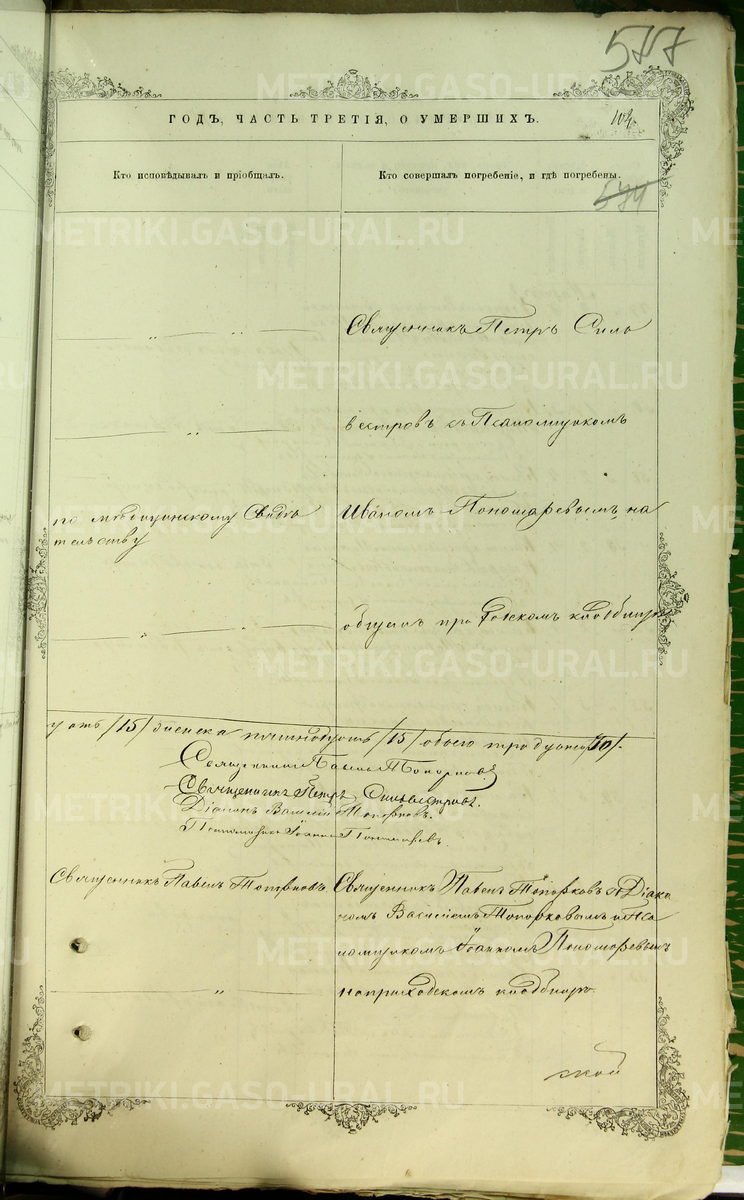 577
ГОДЪ, ЧАСТЬ ТРЕТІЯ, О УМЕРШИХЪ.
104.
Кто исповѣдывалъ и пріобщалъ.
Кто совершалъ погребеніе, и гдѣ погребены.
574
Священникъ Петръ Силь
вестровъ съ Псаломщикомъ
по медицинскому Свидѣ
тельству
Иваномъ Пономаревымъ, на
общемъ приходскомъ кладбищѣ
/15/ женска /15/ обоего
Священникъ Павелъ Топорковъ
Священникъ Петръ Сильвестровъ.
Діаконъ Василій Топорковъ.
Псаломщикъ Іоаннъ Пономаревъ
Священникъ Павелъ Топорковъ
Священникъ Павелъ Топорковъ съ Діако
номъ Василіемъ Топорковымъ и Пса
ломщикомъ Іоанномъ Пономаревымъ
на приходскомъ кладбищѣ
METRIKI.GASO-URAL.RU